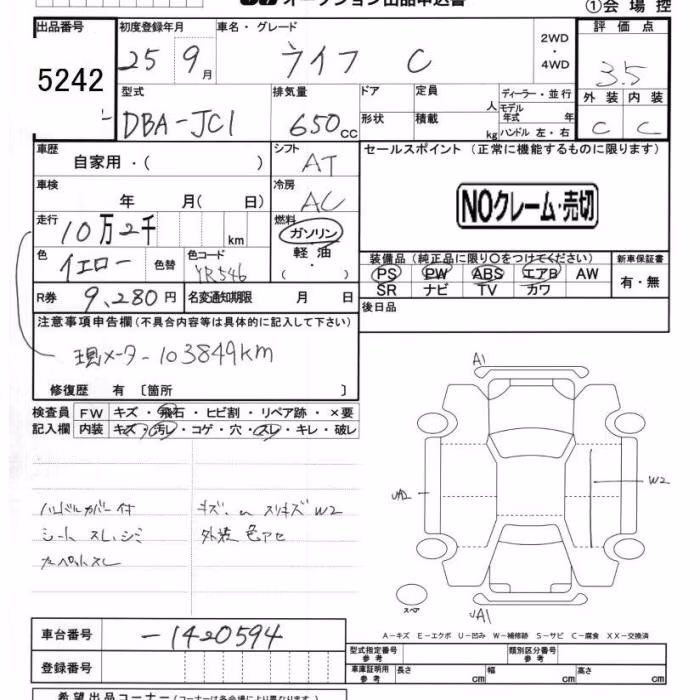 オークション出品申込書
①会場控
出品番号 初度登録年月 車名・グレード 2WD・4WD 評価点
5242 25 9月 ライフ C 3.5
型式 排気量 ドア 定員 人 ディーラー・並行 外装 内装
DBA-JC1 650cc 形状 積載 kg モデル年式 年 ハンドル 左・右 C C
車歴 自家用・( ) シフト AT セールスポイント (正常に機能するものに限ります)
車検 年 月( 日) 冷房 AC NOクレーム・売切
走行 10万2千 km 燃料 ガソリン
色 イエロー 色替 色コード YR546 軽油 ( ・ ) 装備品 (純正品に限り○をつけてください) 新車保証書
PS PW ABS エアB AW 有・無
SR ナビ TV カワ
R券 9,280円 名変通知期限 月 日 後日品
注意事項申告欄 (不具合内容等は具体的に記入して下さい)
現メーター103849km
修復歴 有 〔箇所 〕
検査員 FW キズ・飛石・ヒビ割・リペア跡・×要
記入欄 内装 キズ・汚レ・コゲ・穴・スレ・キレ・破レ
A1
W2
UA2
ハンドルカバー付 キズ. スリキズ W2
シート スレ、シミ 外装 色アセ
カーペットスレ
スペア
UA1
A-キズ E-エクボ U-凹み W-補修跡 S-サビ C-腐食 XX-交換済
車台番号 -1420594
型式指定番号 参考 類別区分番号 参考
登録番号 車庫証明用 参考 長さ cm 幅 cm 高さ cm
希望出品コーナー (コーナーは各会場により異なります)